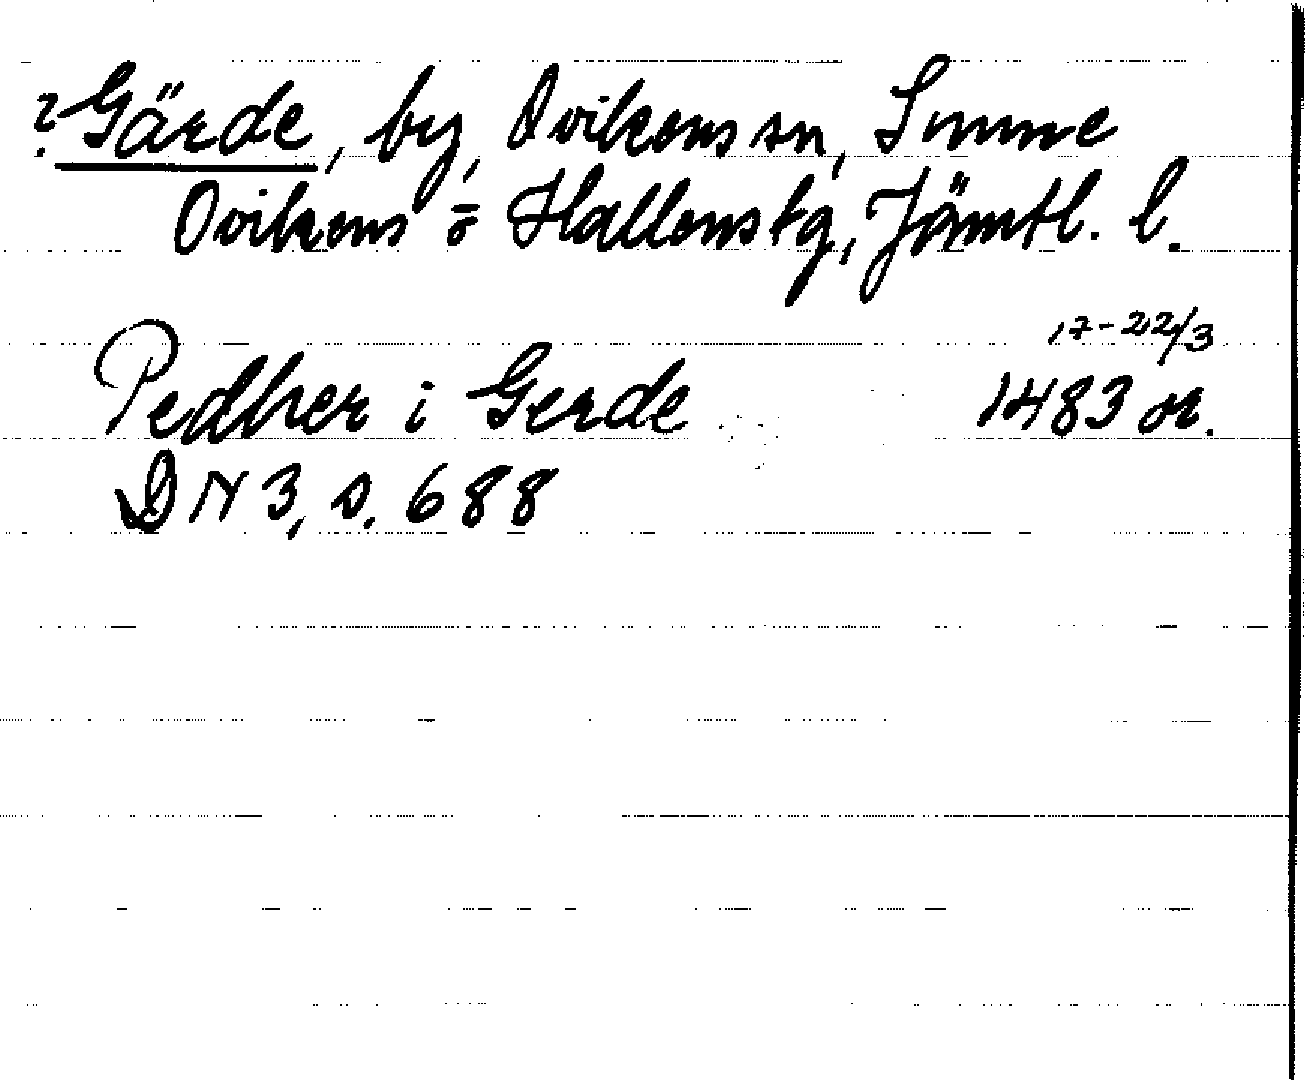 ? Gärde, by, Ovikens sn, Sunne
Ovikens o Hallens tg, Jämtl. l.
17-22/3
Pedher i Gerde 1483 or.
DN 3, s. 688